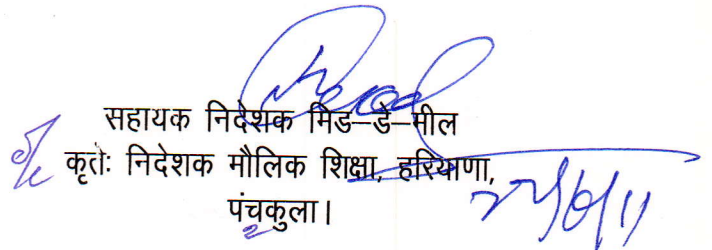 सहायक निदेशक मिड–डे–मील
कृतेः निदेशक मौलिक शिक्षा, हरियाणा,
पंचकुला।